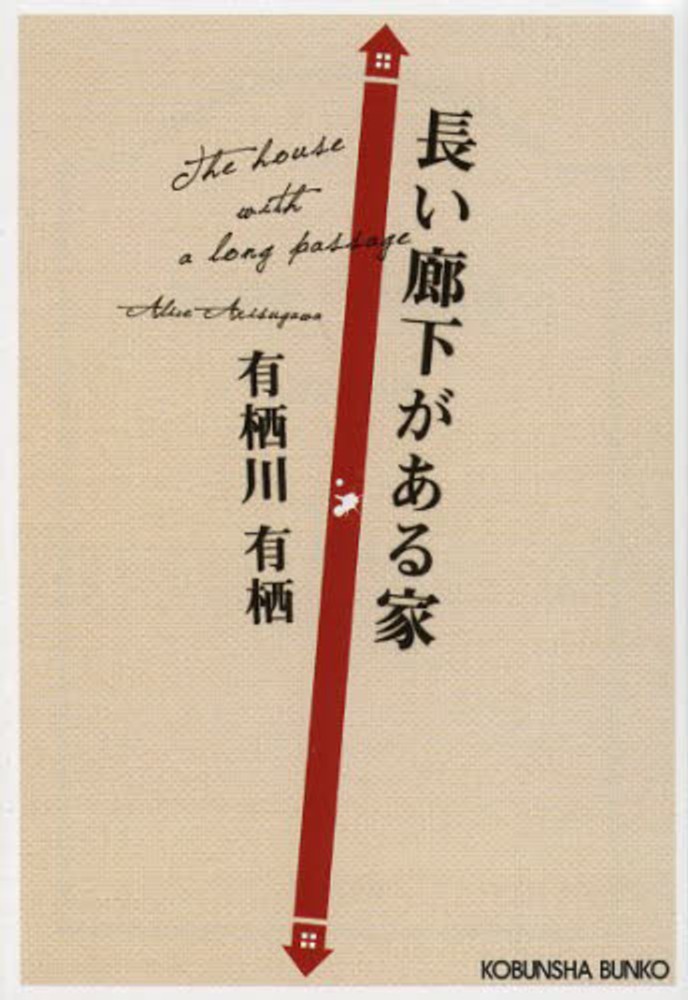 長い廊下がある家
The house
with
a long passage
Alice Arisugawa
有栖川 有栖
KOBUNSHA BUNKO